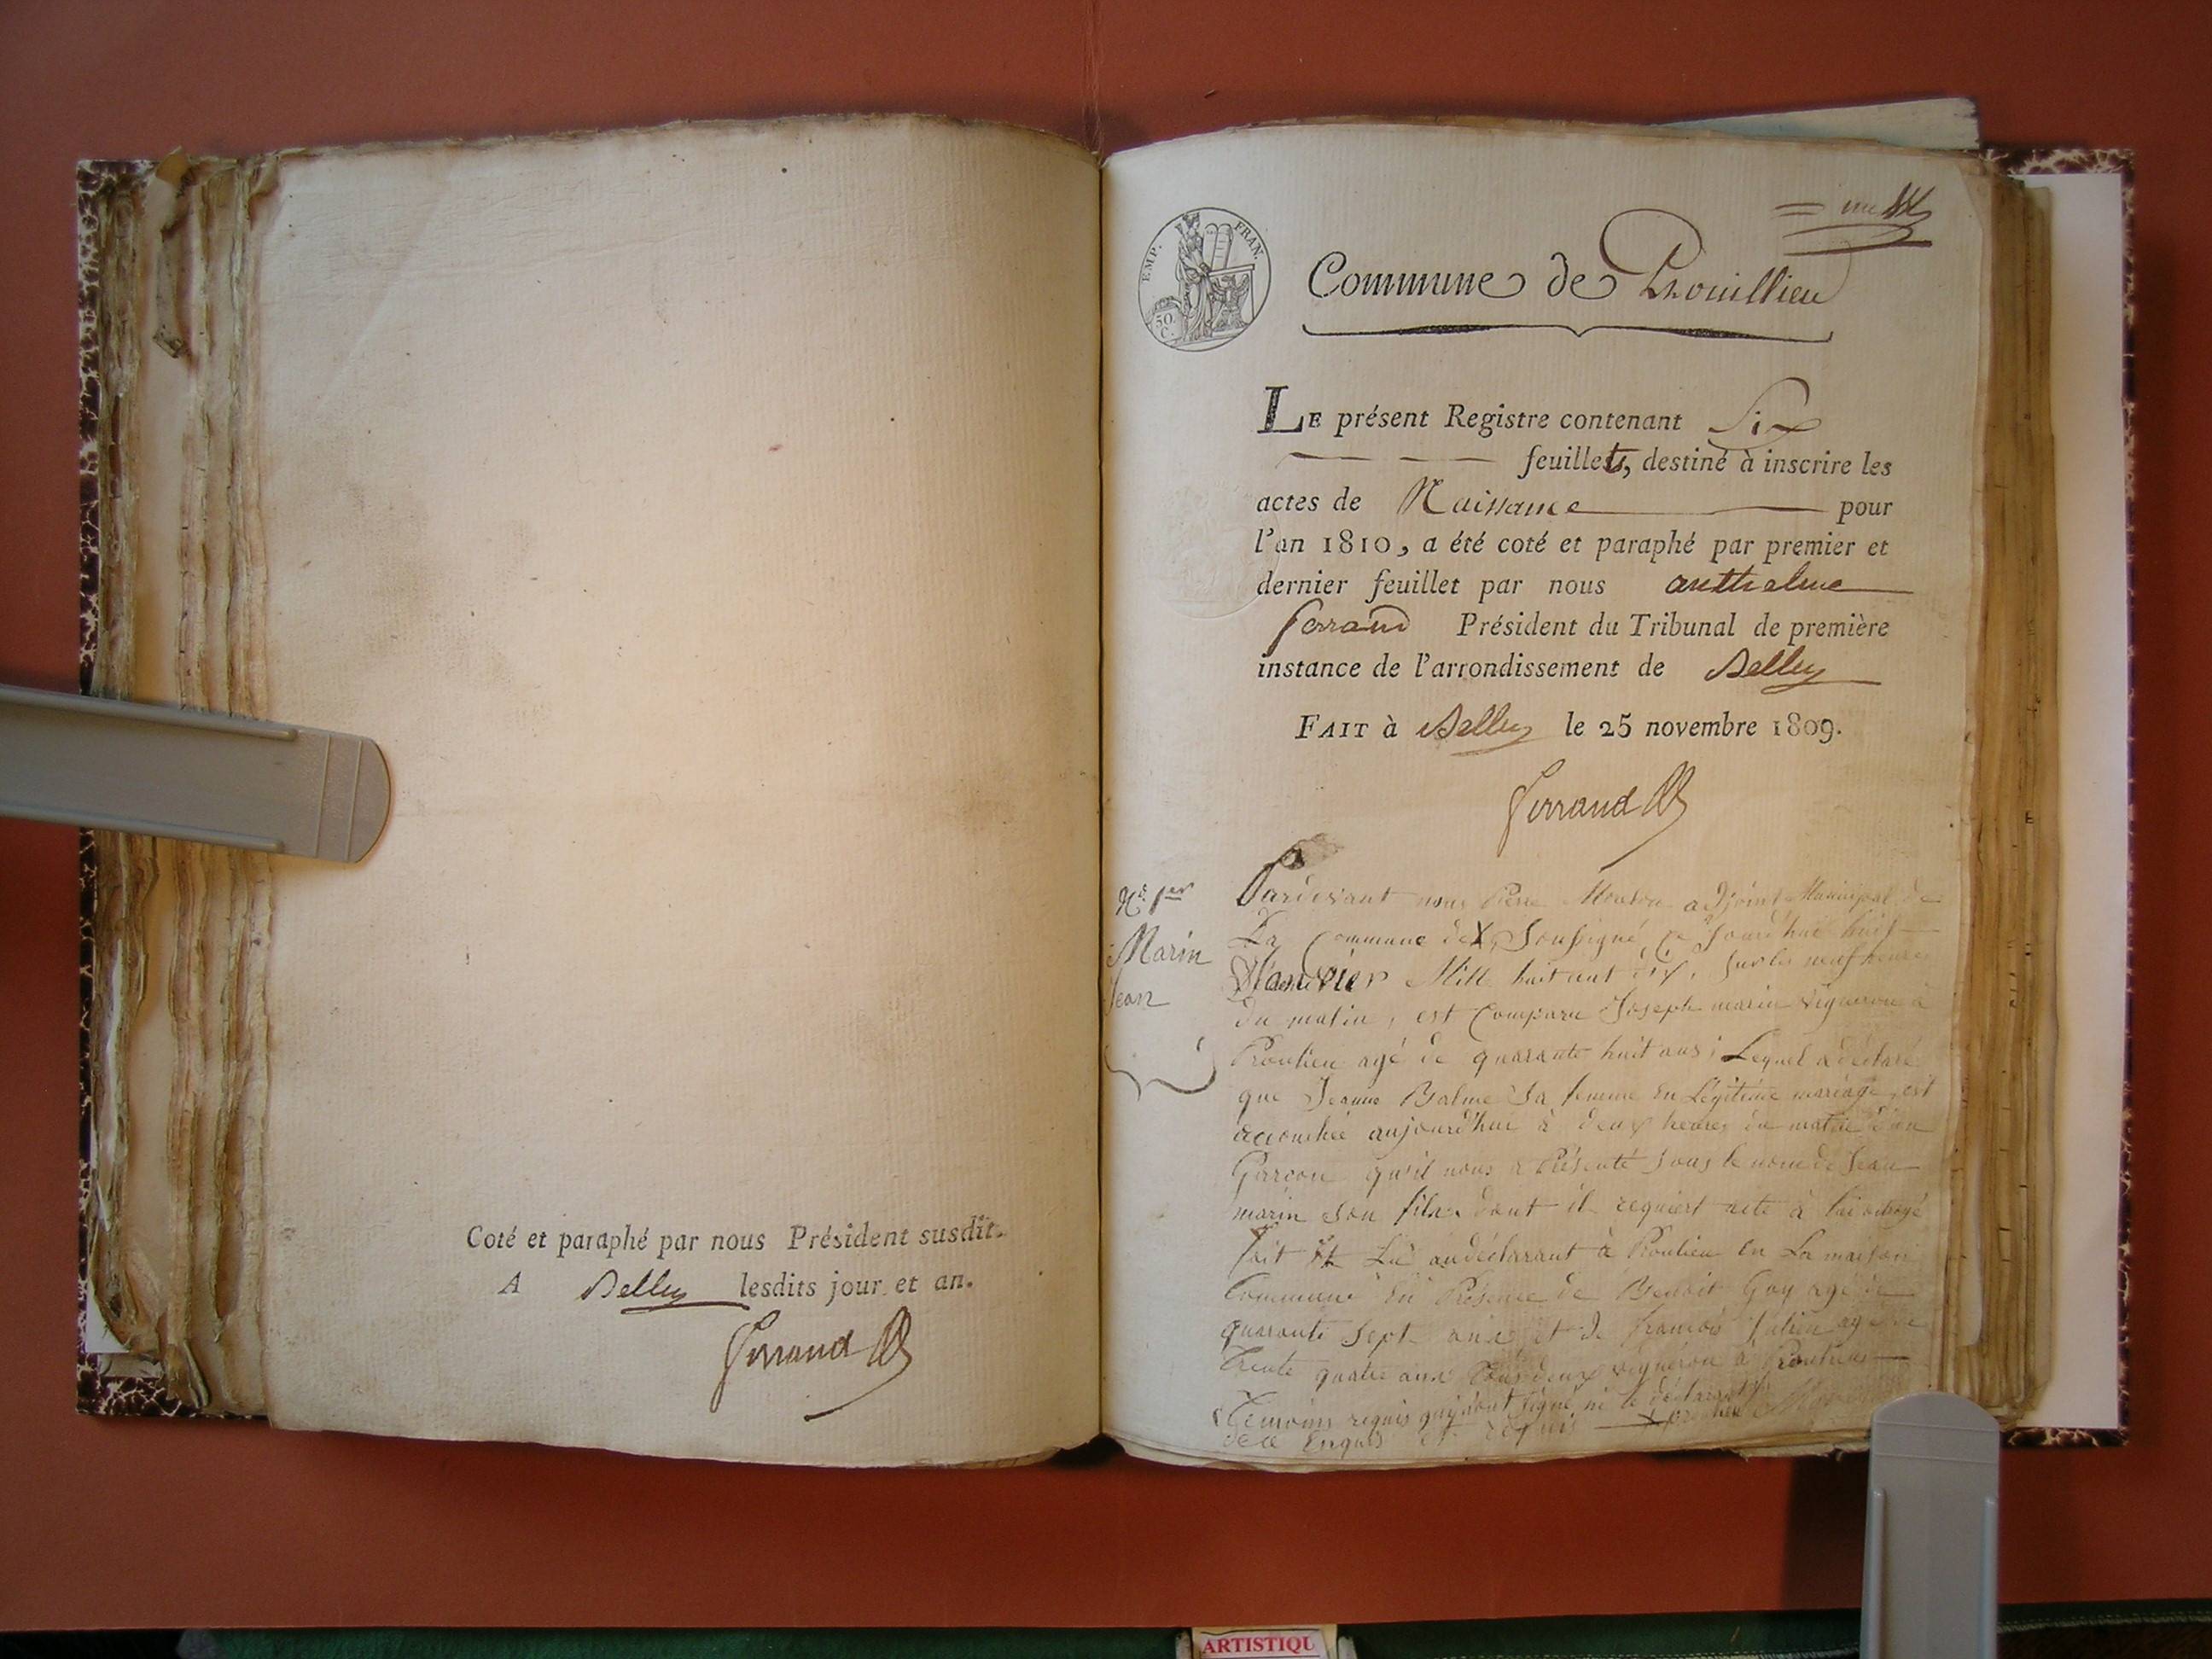 Coté et paraphé par nous Président susdit.
A Belley lesdits jour et an.
Ferrand
EMP. FRAN.
50. C.
un
Commune de Prouillieu
LE présent Registre contenant Six
feuillets, destiné à inscrire les
actes de Naissance pour
l'an 1810, a été coté et paraphé par premier et
dernier feuillet par nous anthelme
ferrand Président du Tribunal de première
instance de l'arrondissement de Belley
FAIT à Belley le 25 novembre 1809.
Ferrand
N.º 1er
Marin
Jean
Pardevant nous Pierre adjoint Municipal de
La Commune de X, Soussigné, ce Jourd'hui huit
Janvier Mille huit cent dix, sur les neuf heures
du matin, est Comparu Joseph marin Vigneron à
Proulieu agé de quarante huit ans; Lequel a déclaré
que Jeanne Balme Sa femme En Légitime mariage, est
accouchée aujourd'hui à deux heures du matin d'un
Garcon qu'il nous a Présenté sous le nom de Jean
marin son fils. dont il requiert acte à lui octroyé
fait Et Lu au déclarant à Proulieu En La maison
Commune En Présence de Benoit Guy agé de
quarante Sept ans et de francois Julien agé de
trente quatre ans tous deux vigneron à Proulieu
Temoins requis qui n'ont signé ni le déclarant
de ce Enquis et requis
ARTISTIQU